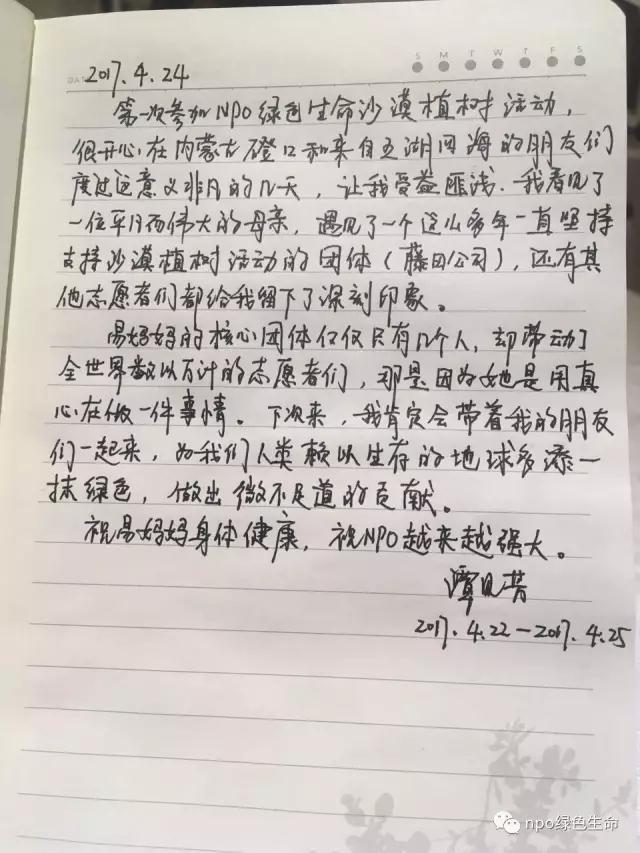 DATE
S M T W T F S
2017.4.24
第一次参加NPO绿色生命沙漠植树活动，
很开心在内蒙古磴口和来自五湖四海的朋友们
度过这意义非凡的几天，让我受益匪浅。我看见了
一位平凡而伟大的母亲，遇见了一个这么多年一直坚持
支持沙漠植树活动的团体（藤田公司），还有其
他志愿者们都给我留下了深刻印象。
易妈妈的核心团体仅仅只有几个人，却带动了
全世界数以万计的志愿者们，那是因为她是用真
心在做一件事情。下次来，我肯定会带着我的朋友
们一起来，为我们人类赖以生存的地球多添一
抹绿色，做出微不足道的贡献。
祝易妈妈身体健康，祝NPO越来越强大。
谭见芳
2017.4.22—2017.4.25
npo绿色生命